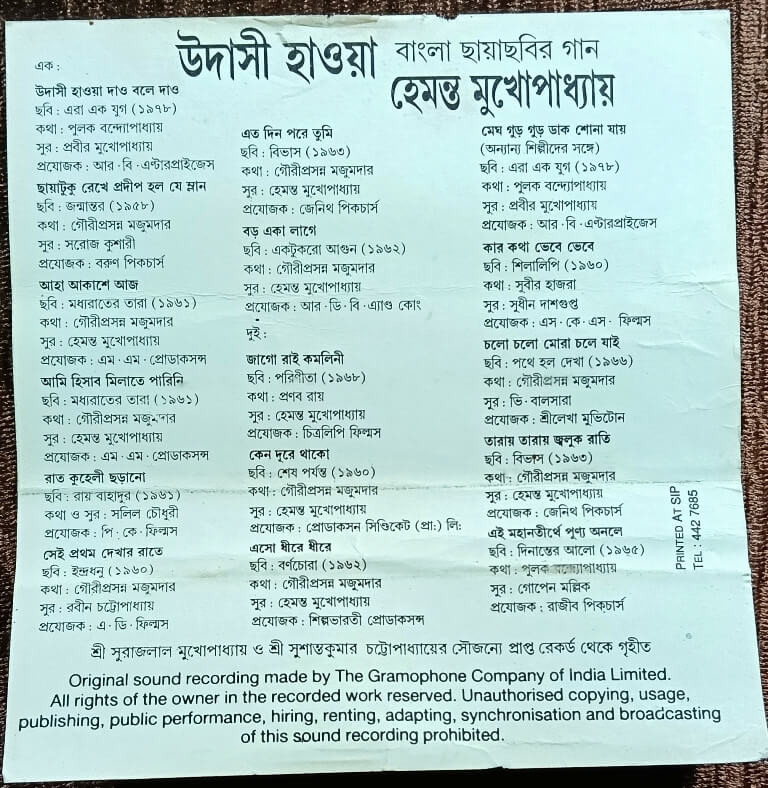 উদাসী হাওয়া বাংলা ছায়াছবির গান
হেমন্ত মুখোপাধ্যায়
এক :
উদাসী হাওয়া দাও বলে দাও
ছবি : এরা এক যুগ (১৯৭৮)
কথা : পুলক বন্দ্যোপাধ্যায়
সুর : প্রবীর মুখোপাধ্যায়
প্রযোজক : আর · বি · এণ্টারপ্রাইজেস
ছায়াটুকু রেখে প্রদীপ হল যে ম্লান
ছবি : জন্মান্তর (১৯৫৮)
কথা : গৌরীপ্রসন্ন মজুমদার
সুর : সরোজ কুশারী
প্রযোজক : বরুণ পিকচার্স
আহা আকাশে আজ
ছবি : মধ্যরাতের তারা (১৯৬১)
কথা : গৌরীপ্রসন্ন মজুমদার
সুর : হেমন্ত মুখোপাধ্যায়
প্রযোজক : এম · এম · প্রোডাকসন্স
আমি হিসাব মিলাতে পারিনি
ছবি : মধ্যরাতের তারা (১৯৬১)
কথা : গৌরীপ্রসন্ন মজুমদার
সুর : হেমন্ত মুখোপাধ্যায়
প্রযোজক : এম · এম · প্রোডাকসন্স
রাত কুহেলী ছড়ানো
ছবি : রায় বাহাদুর (১৯৬১)
কথা ও সুর : সলিল চৌধুরী
প্রযোজক : পি · কে · ফিল্মস
সেই প্রথম দেখার রাতে
ছবি : ইন্দ্রধনু (১৯৬০)
কথা : গৌরীপ্রসন্ন মজুমদার
সুর : রবীন চট্টোপাধ্যায়
প্রযোজক : এ · ডি · ফিল্মস
এত দিন পরে তুমি
ছবি : বিভাস (১৯৬৩)
কথা : গৌরীপ্রসন্ন মজুমদার
সুর : হেমন্ত মুখোপাধ্যায়
প্রযোজক : জেনিথ পিকচার্স
বড় একা লাগে
ছবি : একটুকরো আগুন (১৯৬২)
কথা : গৌরীপ্রসন্ন মজুমদার
সুর : হেমন্ত মুখোপাধ্যায়
প্রযোজক : আর · ডি · বি · এ্যাণ্ড কোং
দুই :
জাগো রাই কমলিনী
ছবি : পরিণীতা (১৯৬৮)
কথা : প্রণব রায়
সুর : হেমন্ত মুখোপাধ্যায়
প্রযোজক : চিত্রলিপি ফিল্মস
কেন দূরে থাকো
ছবি : শেষ পর্যন্ত (১৯৬০)
কথা : গৌরীপ্রসন্ন মজুমদার
সুর : হেমন্ত মুখোপাধ্যায়
প্রযোজক : প্রোডাকসন সিণ্ডিকেট (প্রা:) লি:
এসো ধীরে ধীরে
ছবি : বর্ণচোরা (১৯৬২)
কথা : গৌরীপ্রসন্ন মজুমদার
সুর : হেমন্ত মুখোপাধ্যায়
প্রযোজক : শিল্পভারতী প্রোডাকসন্স
মেঘ গুড় গুড় ডাক শোনা যায়
(অন্যান্য শিল্পীদের সঙ্গে)
ছবি : এরা এক যুগ (১৯৭৮)
কথা : পুলক বন্দ্যোপাধ্যায়
সুর : প্রবীর মুখোপাধ্যায়
প্রযোজক : আর · বি · এণ্টারপ্রাইজেস
কার কথা ভেবে ভেবে
ছবি : শিলালিপি (১৯৬০)
কথা : সুবীর হাজরা
সুর : সুধীন দাশগুপ্ত
প্রযোজক : এস · কে · এস · ফিল্মস
চলো চলো মোরা চলে যাই
ছবি : পথে হল দেখা (১৯৬৬)
কথা : গৌরীপ্রসন্ন মজুমদার
সুর : ভি · বালসারা
প্রযোজক : শ্রীলেখা মুভিটোন
তারায় তারায় জ্বলুক রাতি
ছবি : বিভাস (১৯৬৩)
কথা : গৌরীপ্রসন্ন মজুমদার
সুর : হেমন্ত মুখোপাধ্যায়
প্রযোজক : জেনিথ পিকচার্স
এই মহাতীর্থে পুণ্য অনলে
ছবি : দিনান্তের আলো (১৯৬৫)
কথা : পুলক বন্দ্যোপাধ্যায়
সুর : গোপেন মল্লিক
প্রযোজক : রাজীব পিকচার্স
PRINTED AT SIP
TEL : 442 7685
শ্রী সুরাজলাল মুখোপাধ্যায় ও শ্রী সুশান্তকুমার চট্টোপাধ্যায়ের সৌজন্যে প্রাপ্ত রেকর্ড থেকে গৃহীত
Original sound recording made by The Gramophone Company of India Limited.
All rights of the owner in the recorded work reserved. Unauthorised copying, usage,
publishing, public performance, hiring, renting, adapting, synchronisation and broadcasting
of this sound recording prohibited.